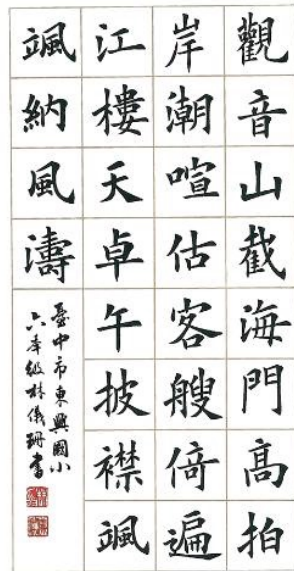 觀音山截海門高拍
岸潮喧估客艘倚遍
江樓天卓午披襟颯
颯納風濤
臺中市東興國小
六年級林儀珊書